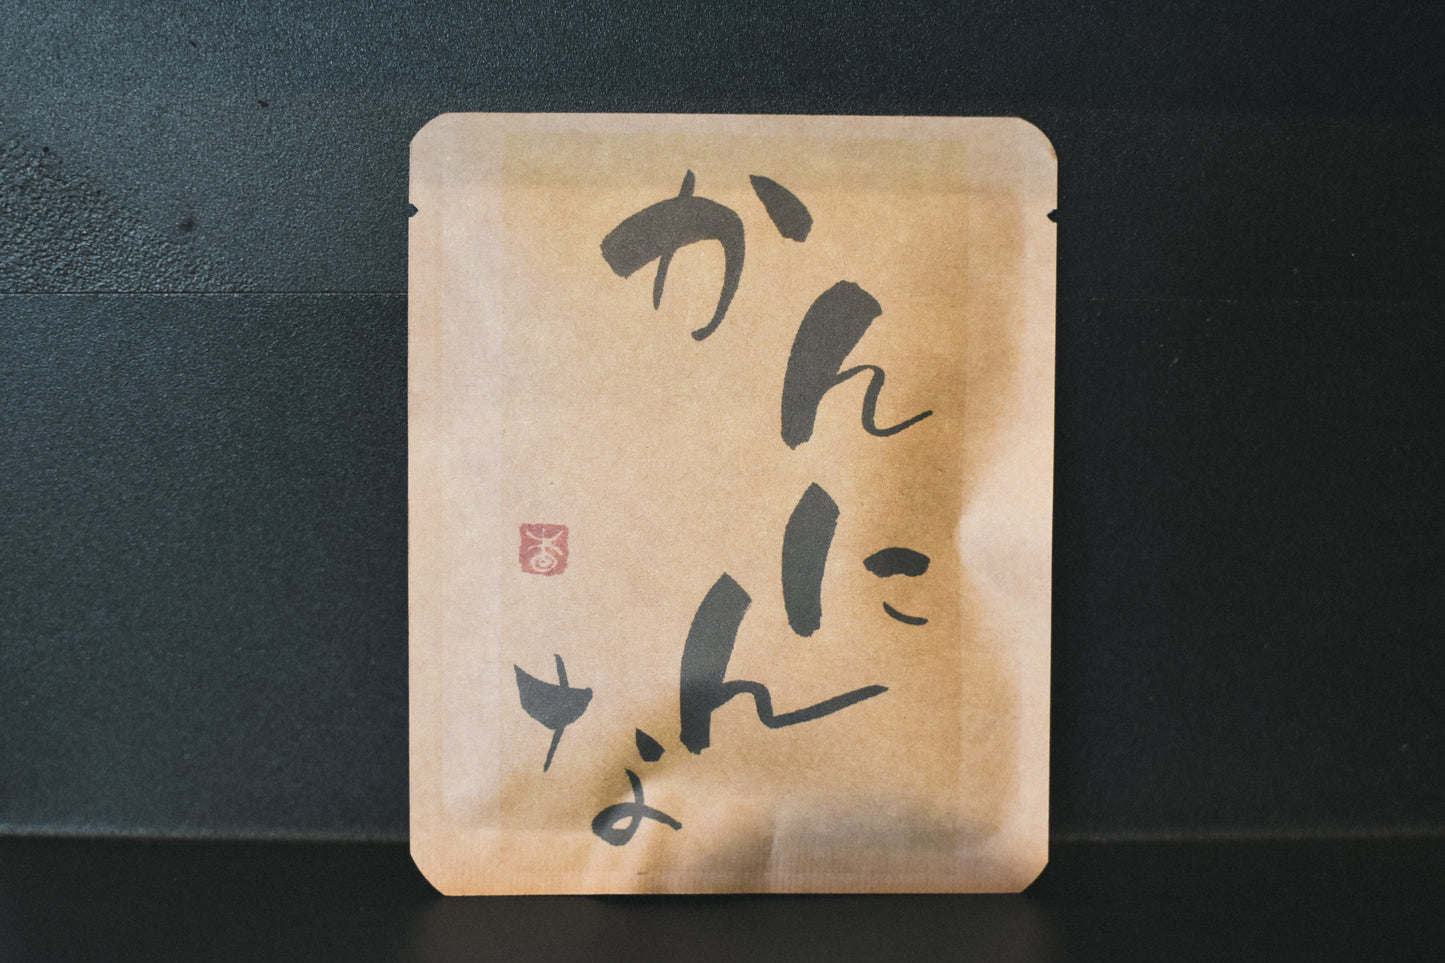 かんにんな
香